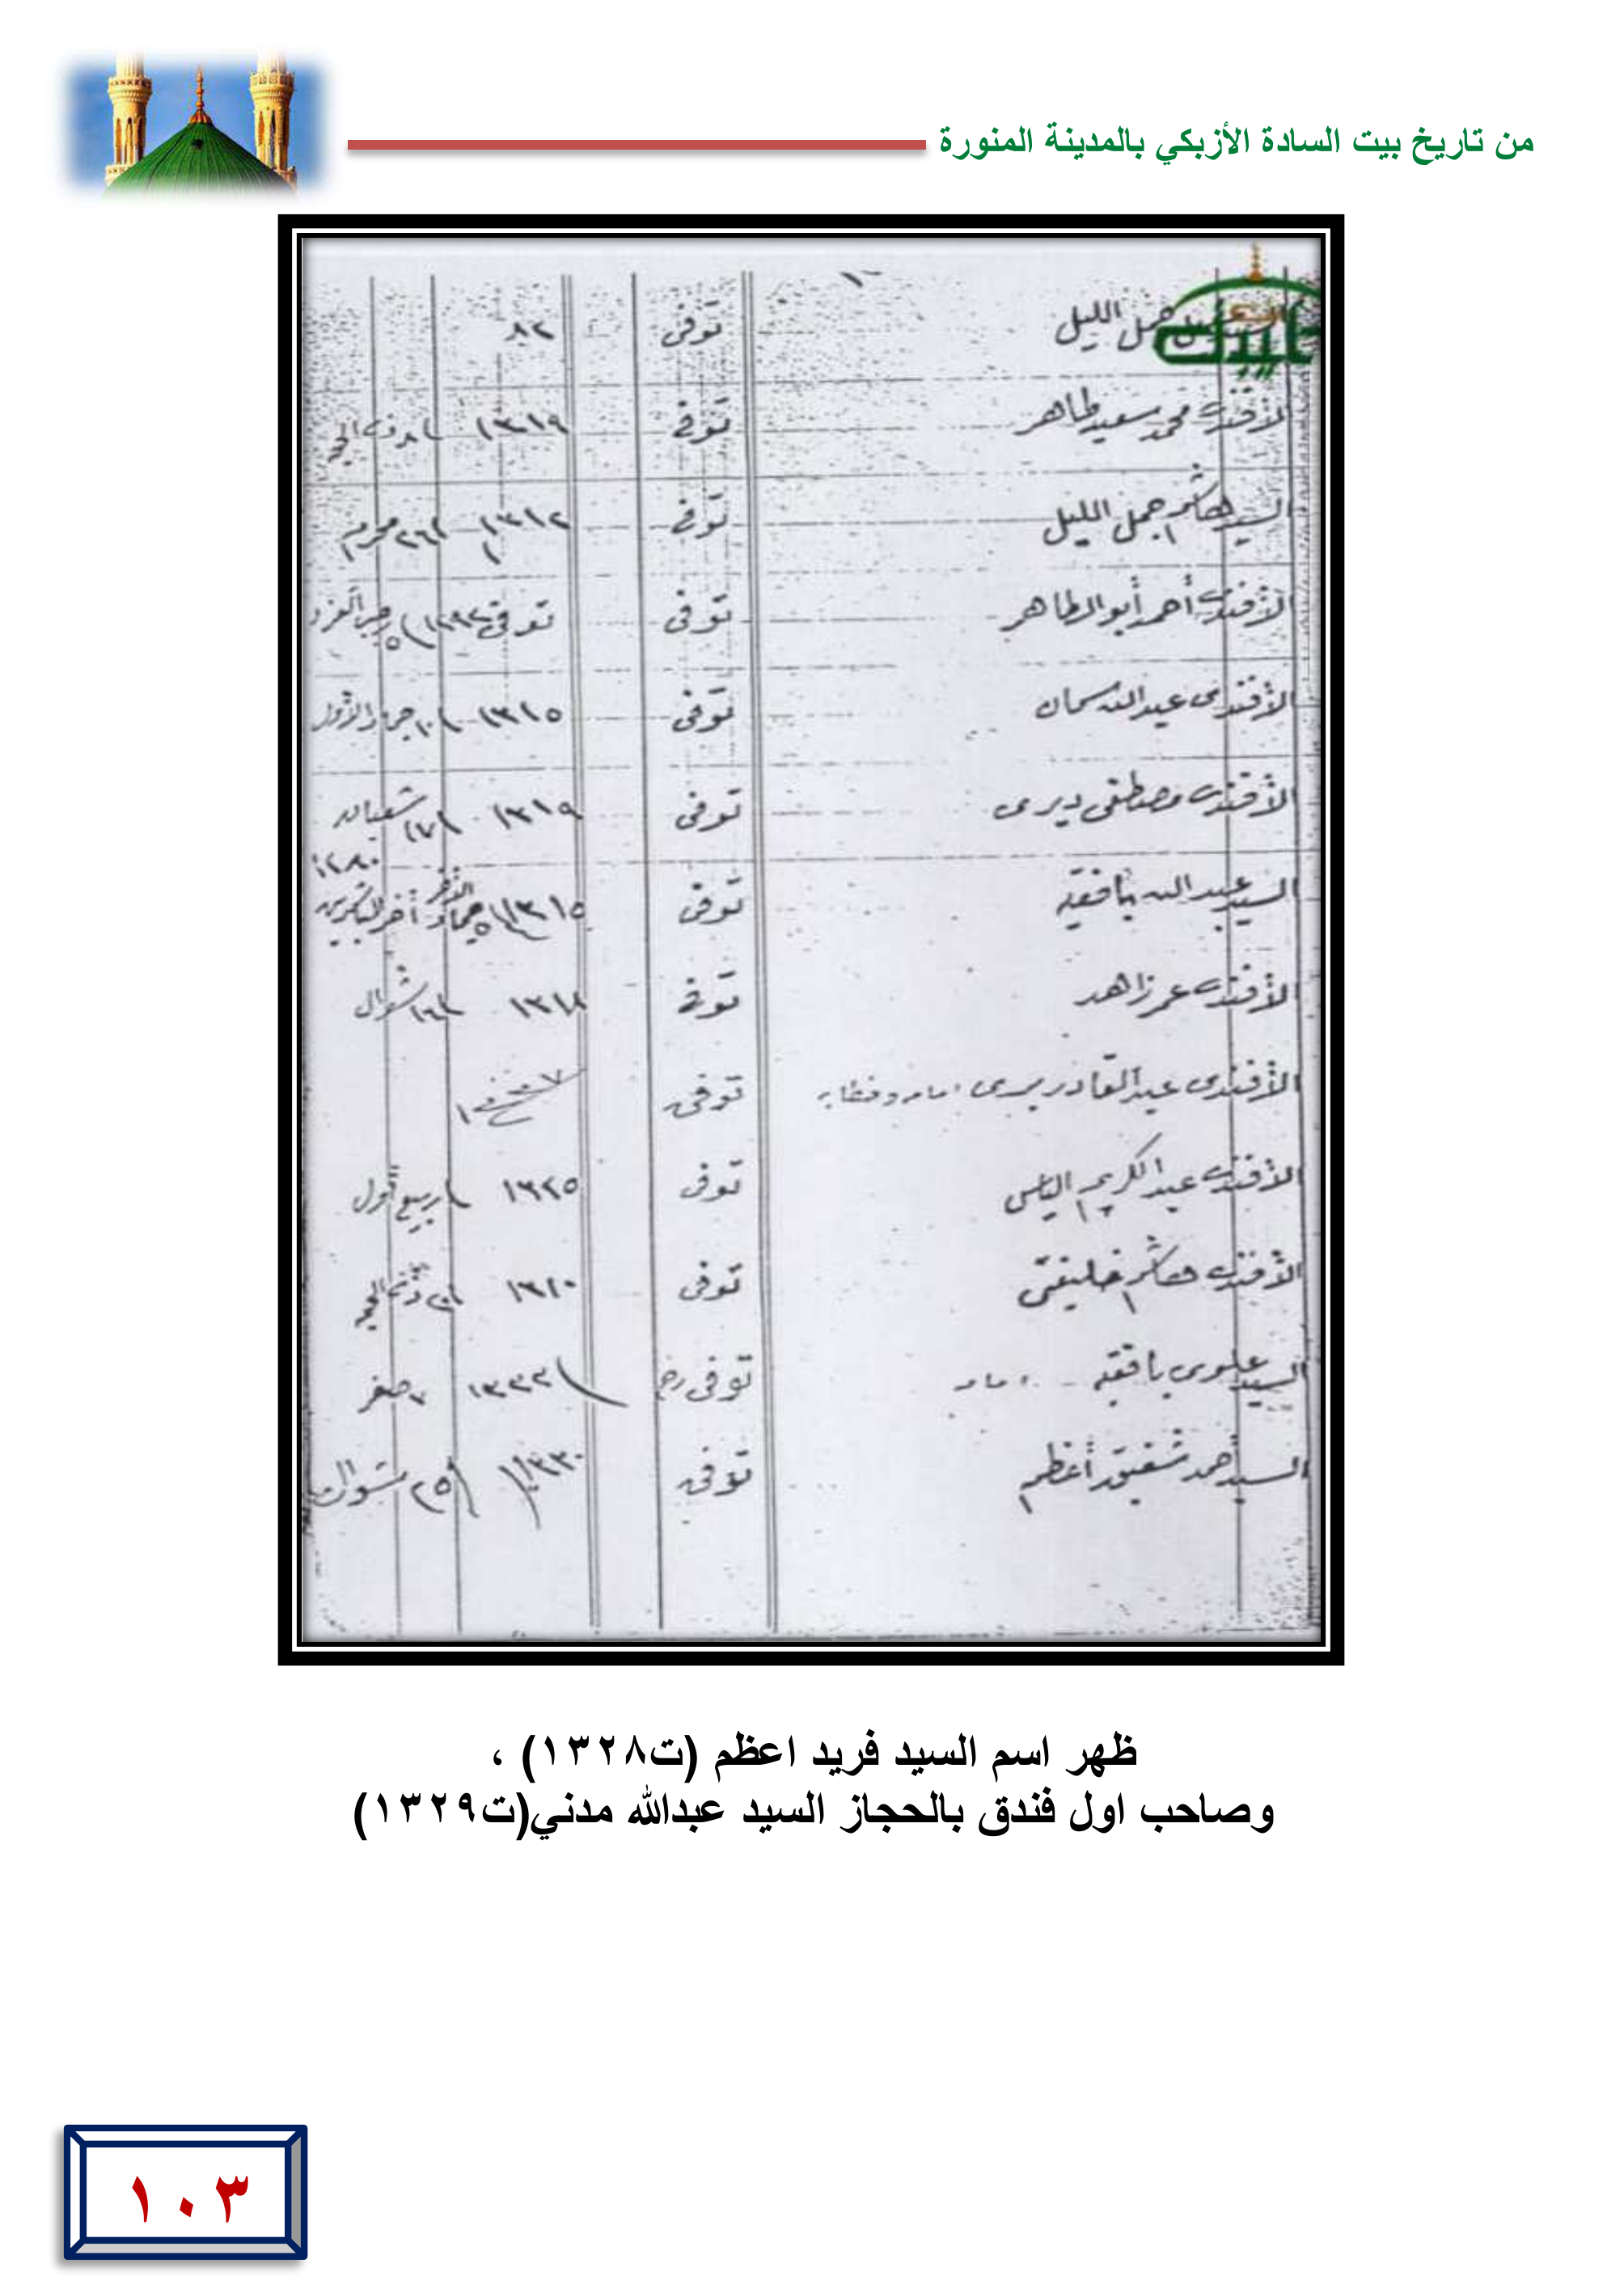 من تاريخ بيت السادة الأزبكي بالمدينة المنورة
جمل الليل توفى ٨٢
الأفندي محمد سعيد طاهر توفى ١٣١٩
السيد هاشم جمل الليل توفى ١٣١٢ ٢٦ محرم
الأفندي أحمد أبو الطاهر توفى توفى ١٢٩٢
الأفندي عبدالله سمان توفى ١٣١٥ ١٠ جماد الأول
الأفندي مصطفى ديرى توفى ١٣١٩ ١٧ شعبان
١٢٨٠
السيد عبدالله بافقيه توفى ١٣١٥
الأفندي عمر زاهد توفى ١٣١٨ ١٦ شوال
الأفندى عبدالقادر برى امام وخطابه توفى
الأفندي عبدالكريم الياس توفى ١٣٢٥ ربيع أول
الأفندي هاشم خليفتى توفى ١٣١٠ ٢٠
السيد علوى بافقيه امام توفى ١٣٣٣ ٧ صفر
السيد أحمد شفيق أعظم توفى ١٣٣٠ ٢٥ شوال
ظهر اسم السيد فريد اعظم (ت١٣٢٨) ،
وصاحب اول فندق بالحجاز السيد عبدالله مدني(ت١٣٢٩)
١٠٣